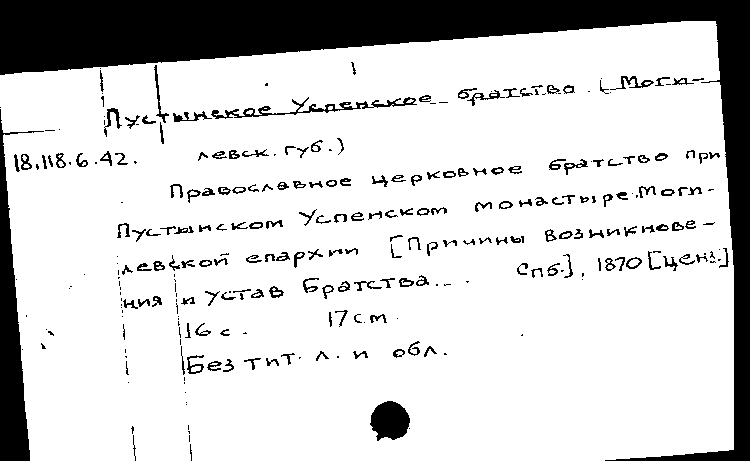 Пустынское Успенское братство (Моги-
18.118.6.42. левск. губ.)
Православное церковное братство при
Пустынском Успенском монастыре Моги-
левской епархии [Причины возникнове-
ния и устав Братства... Спб.], 1870 [ценз.]
16 с. 17 см.
Без тит. л. и обл.